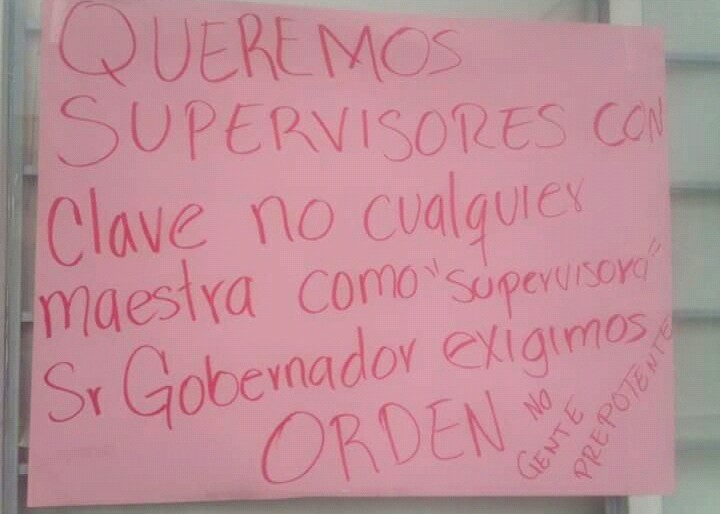 QUEREMOS
SUPERVISORES CON
Clave no cualquier
maestra como "supervisora"
Sr Gobernador exigimos
ORDEN
NO
GENTE
PREPOTENTE